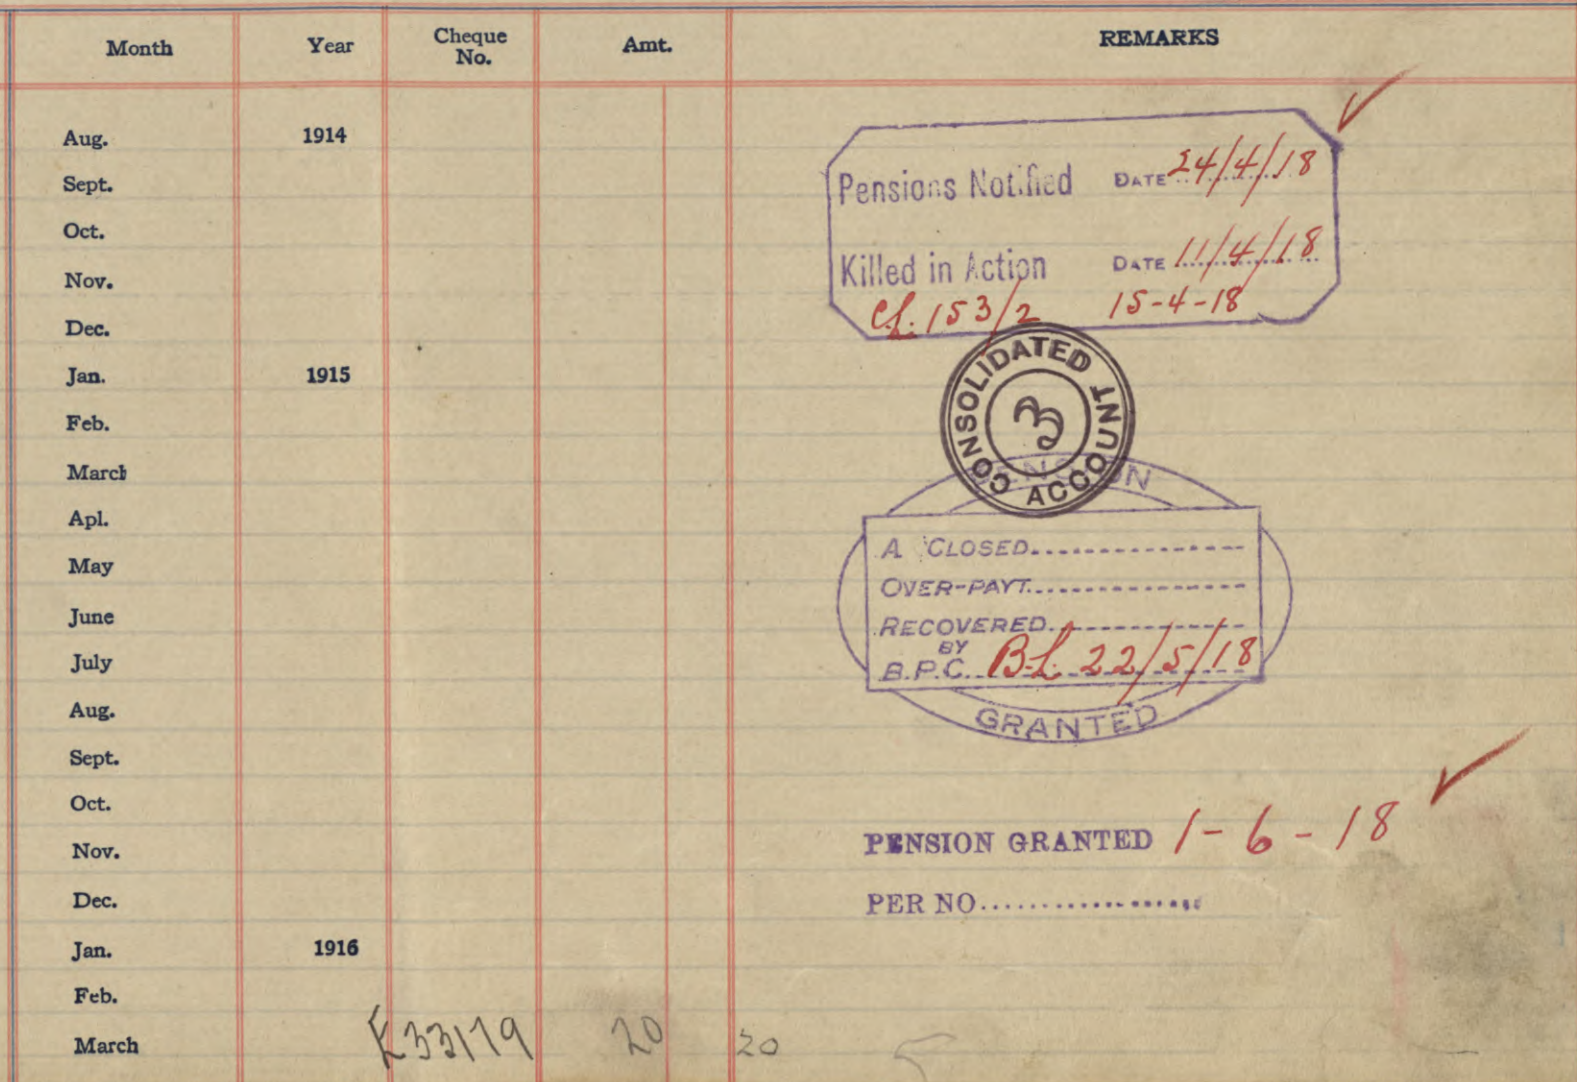 Month Year Cheque No. Amt. REMARKS
Aug. 1914
Sept.
Oct.
Nov.
Dec.
Jan. 1915
Feb.
March
Apl.
May
June
July
Aug.
Sept.
Oct.
Nov.
Dec.
Jan. 1916
Feb.
March E33179 20 20
Pensions Notified DATE 24/4/18
Killed in Action DATE 11/4/18
CL. 153/2 15-4-18
CONSOLIDATED ACCOUNT
3
PENSION
A CLOSED
OVER-PAYT.
RECOVERED
BY
B.P.C. B.L. 22/5/18
GRANTED
PENSION GRANTED 1-6-18
PER NO